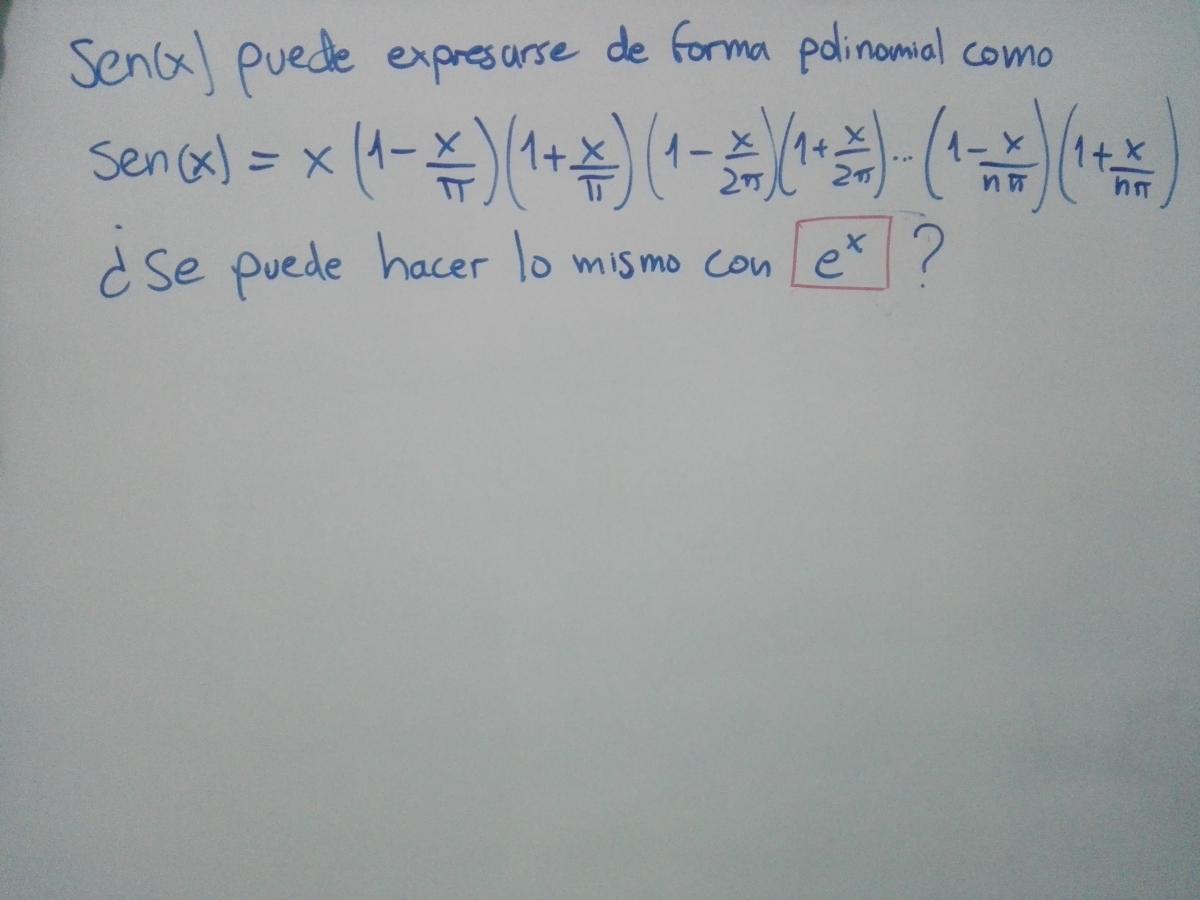 Sen(x) puede expresarse de forma polinomial como
Sen(x) = x (1 - x/π)(1 + x/π)(1 - x/2π)(1 + x/2π)...(1 - x/nπ)(1 + x/nπ)
¿Se puede hacer lo mismo con e^x ?